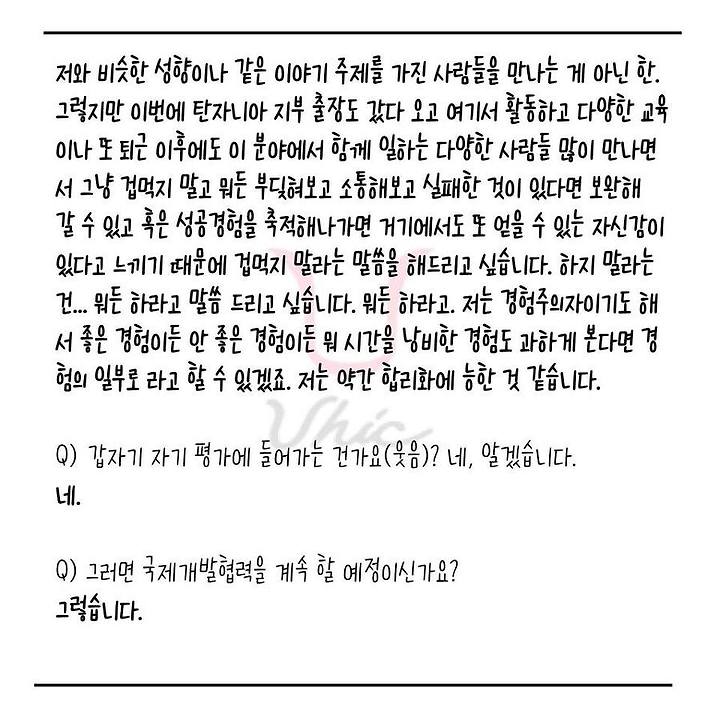 저와 비슷한 성향이나 같은 이야기 주제를 가진 사람들을 만나는 게 아닌 한.
그렇지만 이번에 탄자니아 지부 출장도 갔다 오고 여기서 활동하고 다양한 교육
이나 또 퇴근 이후에도 이 분야에서 함께 일하는 다양한 사람들 많이 만나면
서 그냥 겁먹지 말고 뭐든 부딪혀보고 소통해보고 실패한 것이 있다면 보완해
갈 수 있고 혹은 성공경험을 축적해나가면 거기에서도 또 얻을 수 있는 자신감이
있다고 느끼기 때문에 겁먹지 말라는 말씀을 해드리고 싶습니다. 하지 말라는
건... 뭐든 하라고 말씀 드리고 싶습니다. 뭐든 하라고. 저는 경험주의자이기도 해
서 좋은 경험이든 안 좋은 경험이든 뭐 시간을 낭비한 경험도 과하게 본다면 경
험의 일부로 라고 할 수 있겠죠. 저는 약간 합리화에 능한 것 같습니다.
Uhic
Q) 갑자기 자기 평가에 들어가는 건가요(웃음)? 네, 알겠습니다.
네.
Q) 그러면 국제개발협력을 계속 할 예정이신가요?
그렇습니다.